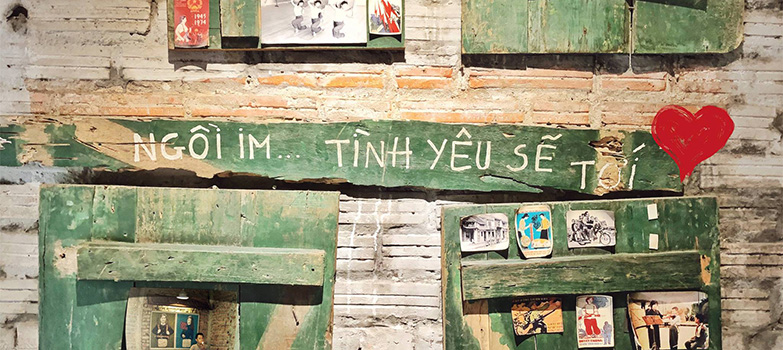 1945
1974
NGÔI IM... TÌNH YÊU SẼ TỚI